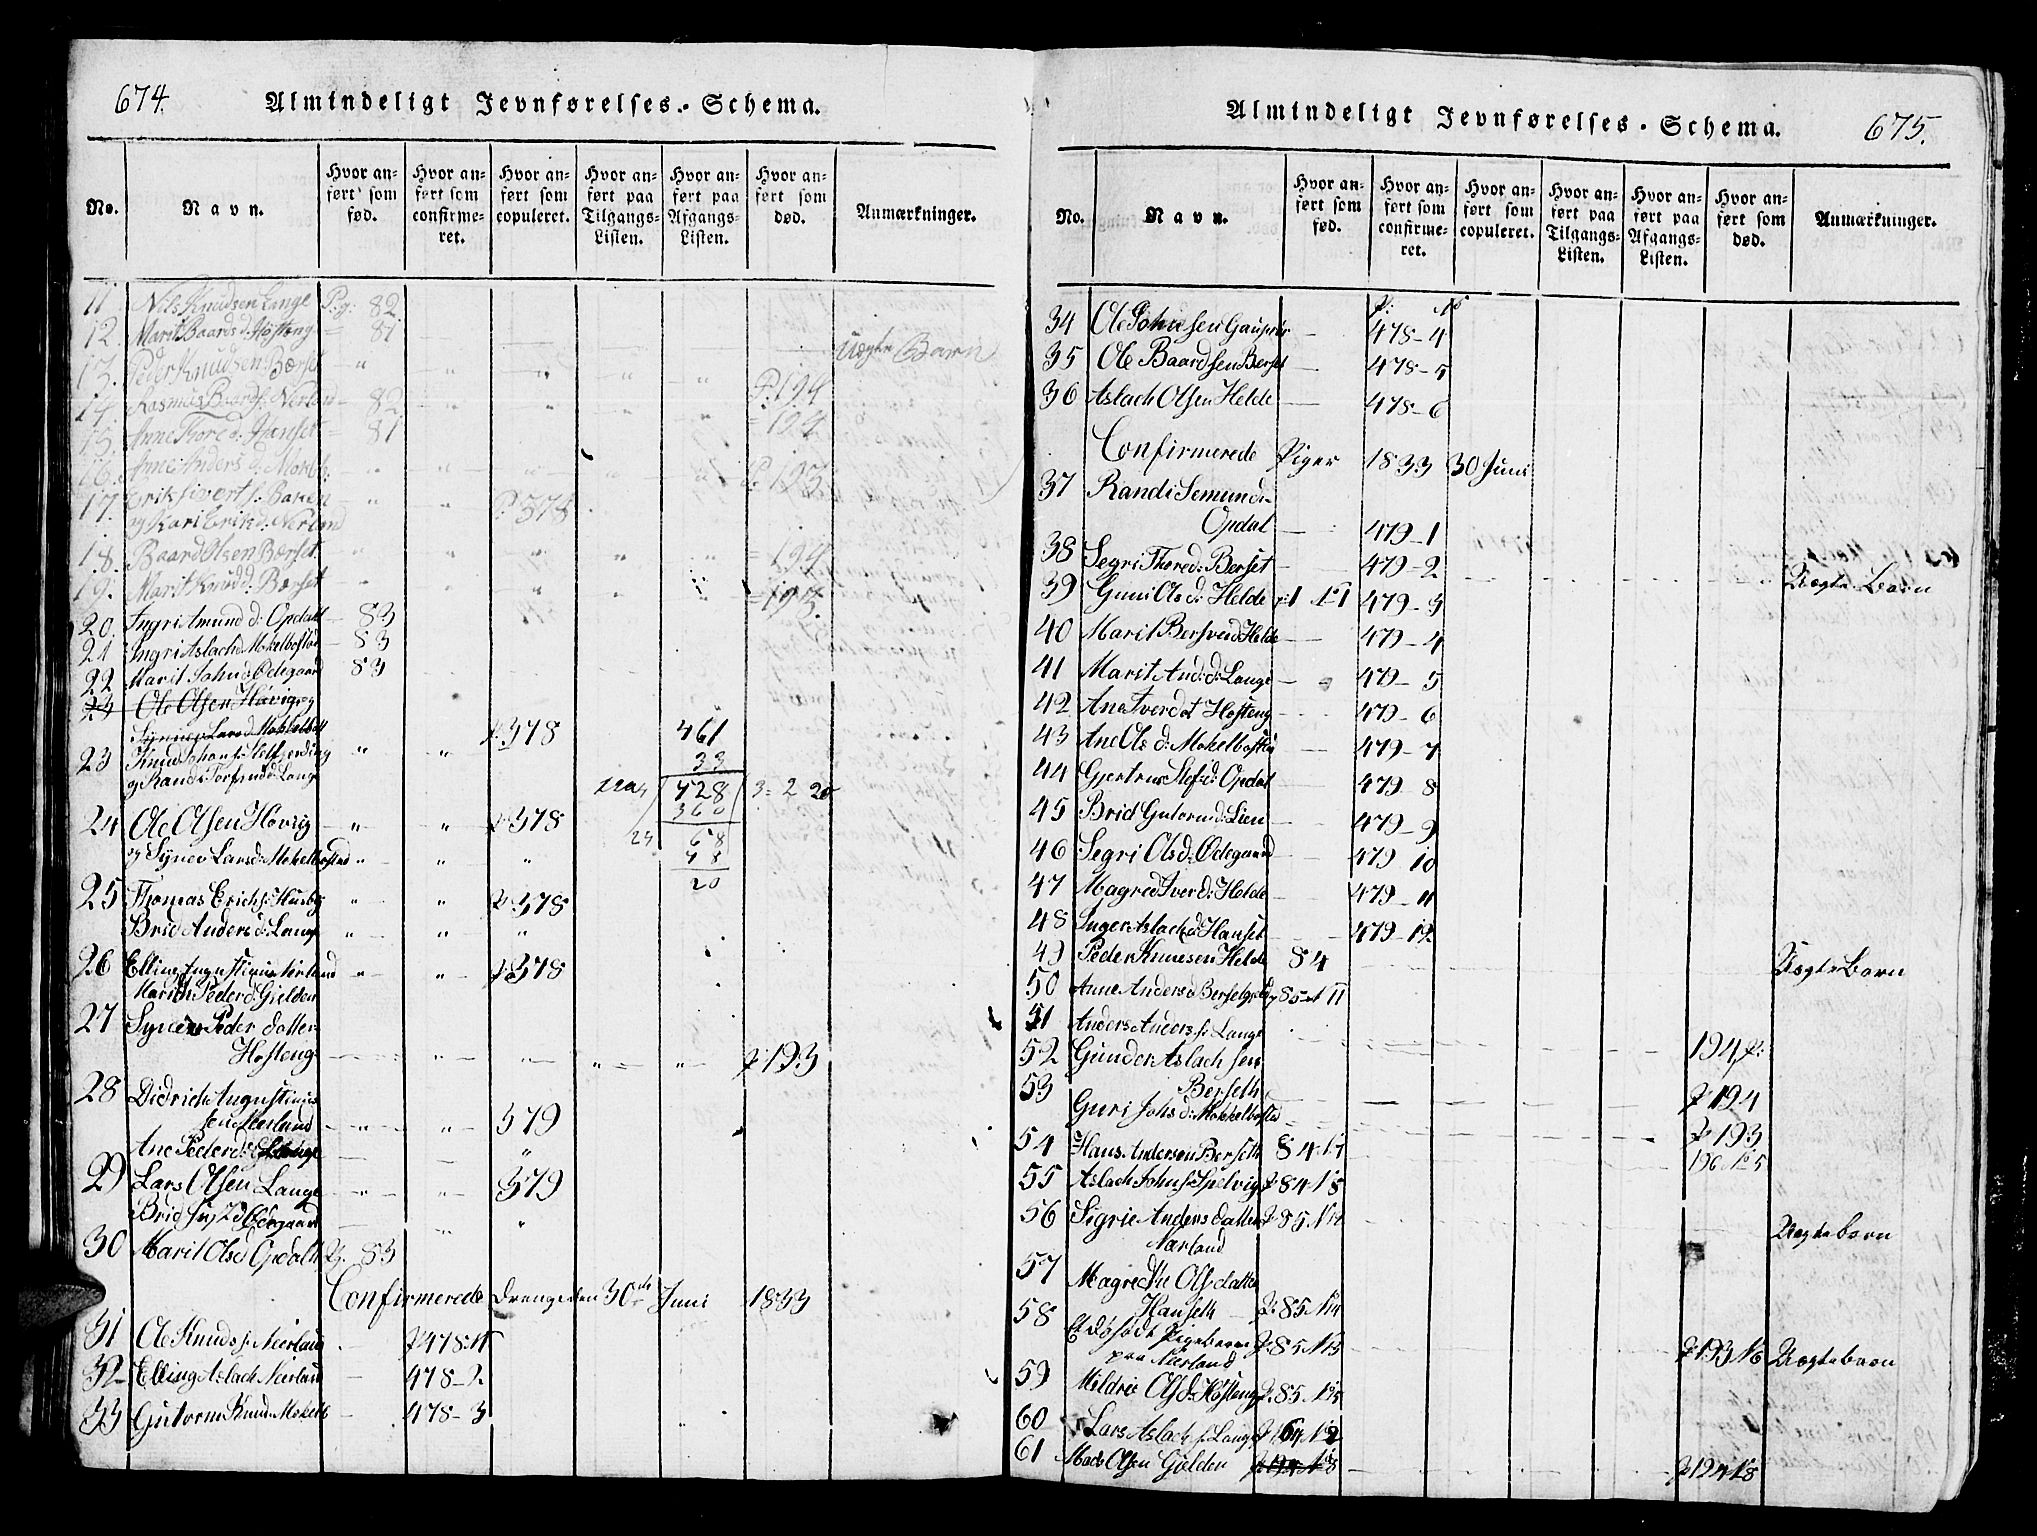 674.
Almindeligt Jevnførelses-Schema.
No.
Navn.
Hvor anført som fød.
Hvor anført som confirmeret.
Hvor anført som copuleret.
Hvor anført paa Tilgangs-Listen.
Hvor anført paa Afgangs-Listen.
Hvor anført som død.
Anmærkninger.
11 Nils Knudsen Lange Pag: 82
12. Marit Baards d: Høsteng = 81
13. Peder Knudsen Bærset " " " " " Uægte Barn
14. Rasmus Baards: Nerland - 82 " " " " P. 194
15. Anne Thore d: Hanset = 81 " = 194
16. Anne Anders d: Mokelb: " " " P. 193
17. Erik Sivert s: Baren " " P 378
og Kari Erik d: Nerland
18. Baard Olsen Bærset " " " " " = 194
19. Marit Knud d: Bærset " " " = 193.
20. Ingri Amund d: Opdahl - 83
21 Ingri Aslach d: Mokelbostad - 83
22 Marit John d: Ødegaard 83
23 Ole Olsen Hävig og
Synnev Lars d: Mokkelbost
23 Knud Johans: Helfjerding " " p 378
og Randi Torfind d: Lange
461
33
428
360
68
48
20
24
3= 2 20
24 Ole Olsen Hövig - " " p 378
og Synev Lars d: Mokelbostad " " "
25 Thomas Erichs: Husby " " p 378
Brid Anders d: Lange " " "
26 Elling Augustinus Nerland " " p 378
Marith Peder d: Gielden
27 Synev Peder datter
Hosteng " " " " p 193
28 Didrich Augustinus
sen Neerland " " 379
Ane Peder d: Lange "
29 Lars Olsen Lange " " 379
Brid Ødegaard " "
30 Marit Ols d Opdalh P. 83
Confirmerede Drenge den 30de Juni 1833
31 Ole Knuds s: Neerland p 478-1
32 Elling Aslach Neerland - 478-2
33 Gutorm Knud: Mokelb - 478-3
Almindeligt Jevnførelses-Schema.
675.
No.
Navn.
Hvor anført som fød.
Hvor anført som confirmeret.
Hvor anført som copuleret.
Hvor anført paa Tilgangs-Listen.
Hvor anført paa Afgangs-Listen.
Hvor anført som død.
Anmærkninger.
p: No
34 Ole Johnsen Gaupset - 478-4
35 Ole Baardsen Berset - 478-5
36 Aslach Olsen Helde - 478-6
Confirmerede Piger 1833 30 Juni
37 Randi Semund d:
Opdal - 479-1
38 Segri Thore d: Berset - 479-2
39 Guni Ols d: Helde 479-3 Uægte Barn
40 Marit Bersven d Helde - 479-4
41 Marit And: d: Lange - 479-5
42 Ane Iver dat Hosteng - 479-6
43 Ane Ols d: Mokelbostad - 479-7
44 Gjertrue Stef: d: Opdal - 479-8
45 Brid Gutorm d: Lien - 479-9
46 Segri Ols d: Ødegaard - 479-10
47 Magred Iver d: Helde - 479-11
48 Inger Aslach d Hanset - 479-12
49 Peder Knutsen Helde 84 Uægte Barn
50 Anne Anders d Berset p 85 N 11
51 Anders Anders s: Lange 194 p:
52 Gunder Aslach sen
Berseth p 194
53 Guri Johs d: Mokkelbostad p 193
54 Hans Andersen Berseth 84 N 7 196 No 5
55 Aslach Johns: Spelvig p 84 N 8
56 Sigrie Anders datter p 85 N 14 Uægtebarn
Nærland
57 Magrethe Ols datter
Hanseth p: 85 N 14
58 Et dødfødt Pigebarn p: 85 N 13 p 193 N 6 Uægtebarn
paa Neerland
59 Mildrie Ols d: Høsteng p: 85 No 15
60 Lars Aslach s: Lange p 164 No 2
61 Mads Olsen Gölden p 194 N 8 p 194 N 8